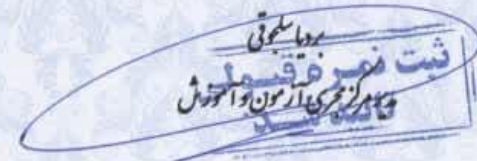 بردیا سلجوقی
مدیر مرکز مجری آزمون و آموزش
ثبت نمره قبولی
تایید شد